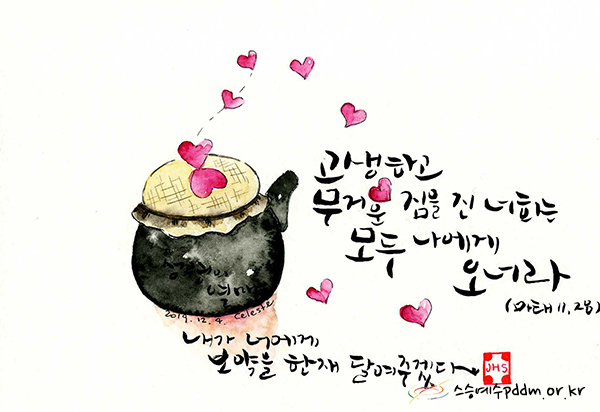 고생하고
무거운 짐을 진 너희는
모두 나에게
오너라
(마태 11,28)
2019. 12. 4. celeste
내가 너에게
보약을 한재 달여주겠다
JHS
스승예수pddm.or.kr